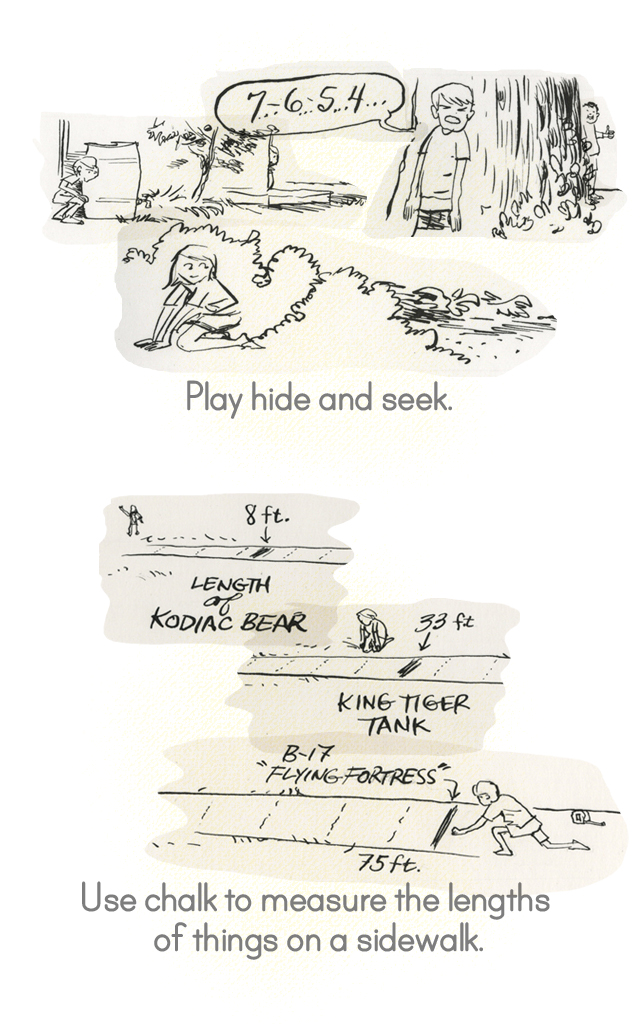 7-6-5..4...
Play hide and seek.
8 ft.
LENGTH
of
KODIAC BEAR
33 ft
KING TIGER
TANK
B-17
"FLYING FORTRESS"
75 ft.
Use chalk to measure the lengths
of things on a sidewalk.